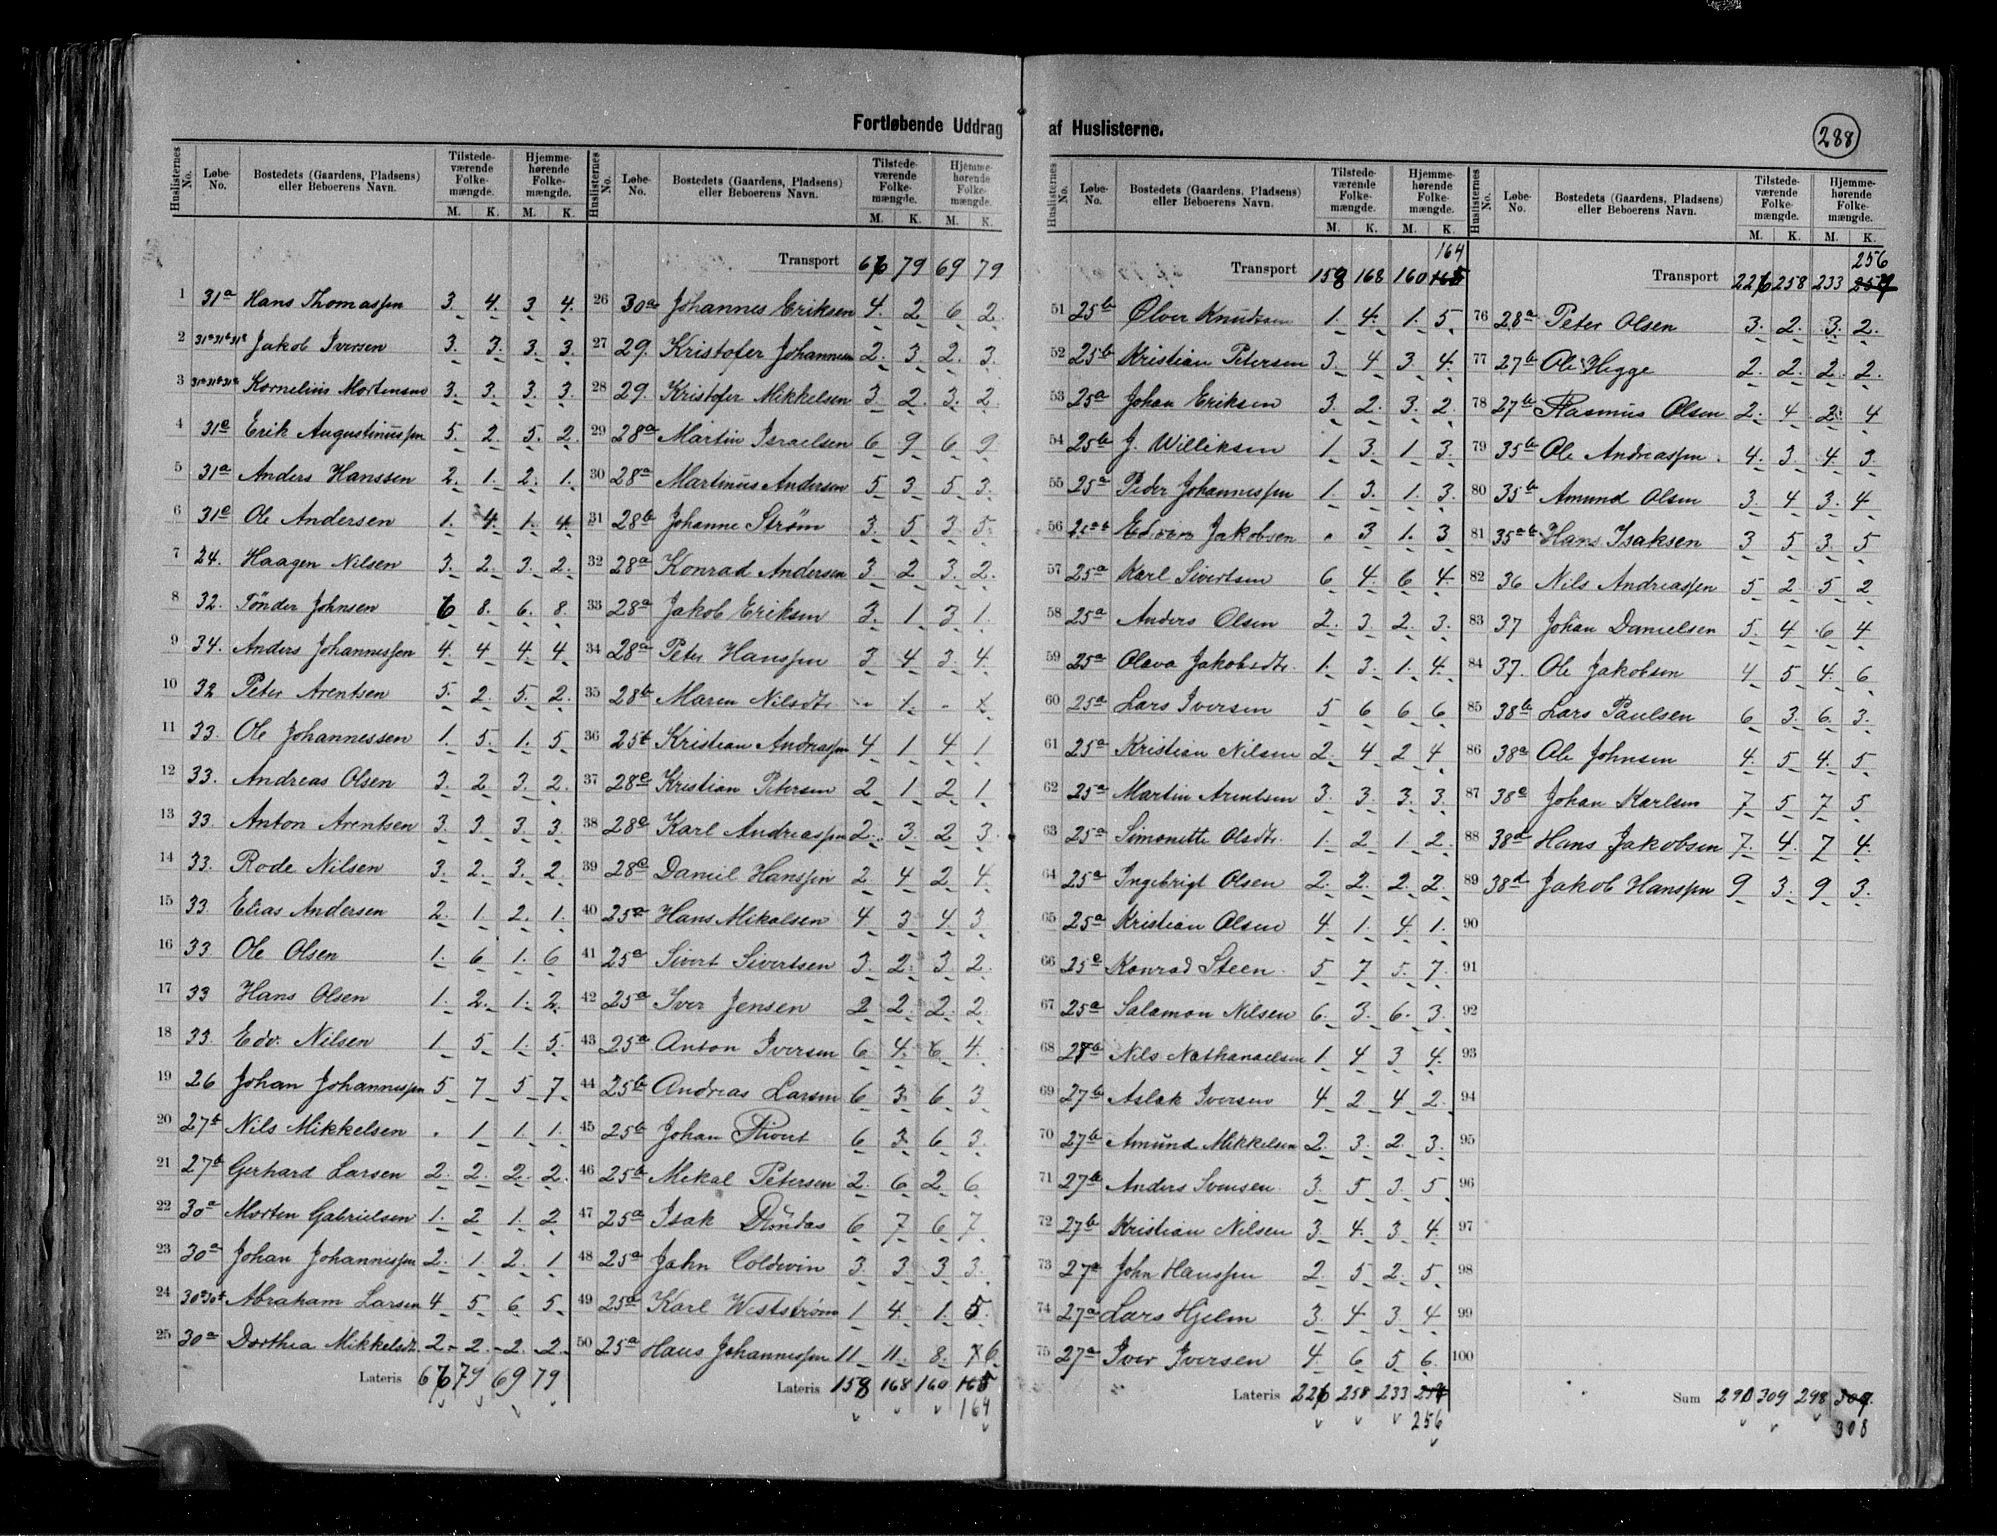 Fortløbende Uddrag af Huslisterne.
288
Huslisternes No. Løbe-No. Bostedets (Gaardens, Pladsens) eller Beboerens Navn. Tilstedeværende Folkemængde. M. K. Hjemmehørende Folkemængde. M. K.
1 31a Hans Thomassen 3. 4. 3. 4.
2 31a 31b 31e Jakob Iversen 3. 3. 3. 3.
3 Kornelius Mortensen 3. 3. 3. 3.
4 31e Erik Augustinussen 5. 2. 5. 2.
5 31a Anders Hanssen 2. 1. 2. 1.
6 31e Ole Andersen 1. 4. 1. 4.
7 24. Haagen Nilsen 3. 2. 3. 2.
8 32. Tønder Johnsen 6 8. 6. 8.
9 34. Anders Johannessen 4. 4 4. 4
10 32 Peter Arentsen 5. 2. 5. 2.
11 33. Ole Johannessen 1. 5. 1. 5
12 33. Andreas Olsen 3. 2. 3. 2.
13 33. Anton Arentsen 3. 3. 3. 3.
14 33. Rode Nilsen 3. 2. 3. 2
15 33 Elias Andersen 2. 1. 2. 1.
16 33. Ole Olsen 1. 6 1. 6
17 33 Hans Olsen 1. 2. 1. 2.
18 33. Edv. Nilsen 1. 5. 1. 5.
19 26 Johan Johannessen 5. 7 5. 7.
20 27b Nils Mikkelsen . 1 1. 1.
21 27b Gerhard Larsen 2. 2. 2. 2.
22 30a Morten Gabrielsen 1. 2 1. 2
23 30a Johan Johannessen 2. 1. 2. 1
24 30a 30b Abraham Larsen 4. 5. 6. 5.
25 30a Dorthea Mikkelsdt. 2. 2. 2. 2.
Lateris 66 79 69 79
Huslisternes No. Løbe-No. Bostedets (Gaardens, Pladsens) eller Beboerens Navn. Tilstedeværende Folkemængde. M. K. Hjemmehørende Folkemængde. M. K.
Transport 66 79 69 79
26 30a Johannes Eriksen 4. 2 6 2.
27 29. Kristofer Johannesen 2. 3. 2. 3.
28 29. Kristofer Mikkelsen 3. 2. 3. 2
29 28a Martin Israelsen 6 9 6 9
30 28a Martinus Andersen 5 3. 5 3.
31 28b Johanne Strøm 3. 5 3 5.
32 28a Konrad Andersen 3 2 3. 2.
33 28a Jakob Eriksen 3. 1 3 1.
34 28a Peter Hanssen 3 4 3. 4.
35 28b Maren Nilsdt. - 1. -
36 25b Kristian Andreassen 4 1 4 1
37 28e Kristian Petersen 2 1 2 1
38 28e Karl Andreassen 2. 3. 2 3.
39 28e Daniel Hanssen 2. 4 2 4.
40 25a Hans Mikalsen 4 3 4 3
41 25a Sivert Sivertsen 3. 2. 3 2.
42 25a Iver Jensen 2 2. 2 2
43 25a Anton Iversen 6 4. 6 4.
44 25b Andreas Larsen 6 3. 6 3
45 25b Johan 6 3 6 3.
46 25b Mekal Petersen 2. 6 2 6
47 25a Isak Dröndas 6 7 6 7.
48 25a Jahn Coldevin 3. 3. 3 3.
49 25a Karl Weststrøm 1 4. 1. 5.
50 25a Hans Johannessen 11 11. 8. 6
Lateris 158 168 160 165
164
Huslisternes No. Løbe-No. Bostedets (Gaardens, Pladsens) eller Beboerens Navn. Tilstedeværende Folkemængde. M. K. Hjemmehørende Folkemængde. M. K.
164
Transport 158 168 160 165
51 25b Olver Knudtsen 1. 4. 1. 5
52 25b Kristian Petersen 3 4 3 4.
53 25a Johan Eriksen 3. 2. 3. 2.
54 25b J. Williksen 1 3. 1 3.
55 25a Peder Johannessen 1. 3. 1. 3.
56 Edvar Jakobsen . 3 1. 3
57 25a Karl Sivertsen 6 4. 6 4.
58 25a Anders Olsen 2. 3. 2 3.
59 25a Olava Jakobsdt. 1. 3. 1. 4.
60 25a Lars Iversen 5 6 6 6
61 25a Kristian Nilsen 2. 4 2 4
62 25a Martin Arentsen 3. 3. 3. 3.
63 25a Simonette Olsdt. 1. 2 1 2.
64 25a Ingebrigt Olsen 2. 2. 2. 2
65 25a Kristian Olsen 4 1. 4. 1.
66 25e Konrad Steen. 5 7. 5. 7.
67 25a Salamon Nilsen 6. 3. 6. 3.
68 Nils Nathanaelsen 1 4 3 4.
69 27b Aslak Iversen 4 2 4 2.
70 27b Amund Mikkelsen 2. 3. 2. 3.
71 27b Anders Svensen 3. 5 3. 5
72 27b Kristian Nilsen 3 4. 3. 4.
73 27a John Hanssen 2. 5 2. 5.
74 27a Lars Hjelm 3. 4 3. 4
75 27a Iver Iversen 4. 6 5 6.
Lateris 226 258 233 257
256
Huslisternes No. Løbe-No. Bostedets (Gaardens, Pladsens) eller Beboerens Navn. Tilstedeværende Folkemængde. M. K. Hjemmehørende Folkemængde. M. K.
256
Transport 226 258 233 257
76 28a Peter Olsen 3. 2. 3. 2.
77 27b Ole Hegge 2. 2. 2. 2.
78 27b Rasmus Olsen 2. 4 2. 4
79 35b Ole Andreassen. 4. 3. 4. 3
80 35b Amund Olsen 3. 4 3. 4.
81 35ab Hans Isaksen 3 5 3. 5
82 36 Nils Andreassen 5 2 5 2
83 37 Johan Danielsen 5. 4 6 4
84 37. Ole Jakobsen 4 5 4. 6
85 38b Lars Paulsen 6 3. 6. 3.
86 38a Ole Johnsen 4. 5 4. 5
87 38e Johan Karlsen 7 5 7 5
88 38d Hans Jakobsen 7. 4. 7 4.
89 38d Jakob Hanssen 9 3. 9 3.
90
91
92
93
94
95
96
97
98
99
100
Sum 290 309 298 309.
308